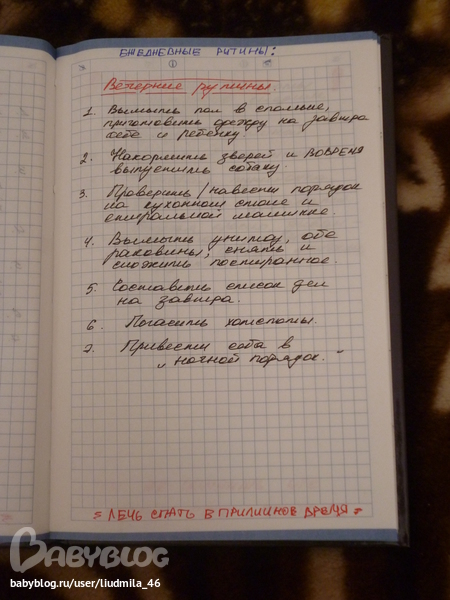 ЕЖЕДНЕВНЫЕ РУТИНЫ:
Вечерние рутины.
1. Вымыть пол в спальне,
приготовить одежду на завтра
себе и ребенку.
2. Накормить зверей и ВОВРЕМЯ
выпустить собаку.
3. Проверить/навести порядок
на кухонном столе и
стиральной машинке.
4. Вымыть унитаз, обе
раковины, снять и
сложить постиранное.
5. Составить список дел
на завтра.
6. Погасить хотспоты.
7. Привести себя в
"ночной порядок."
= ЛЕЧЬ СПАТЬ В ПРИЛИЧНОЕ ВРЕМЯ =
BABYBLOG
babyblog.ru/user/liudmila_46